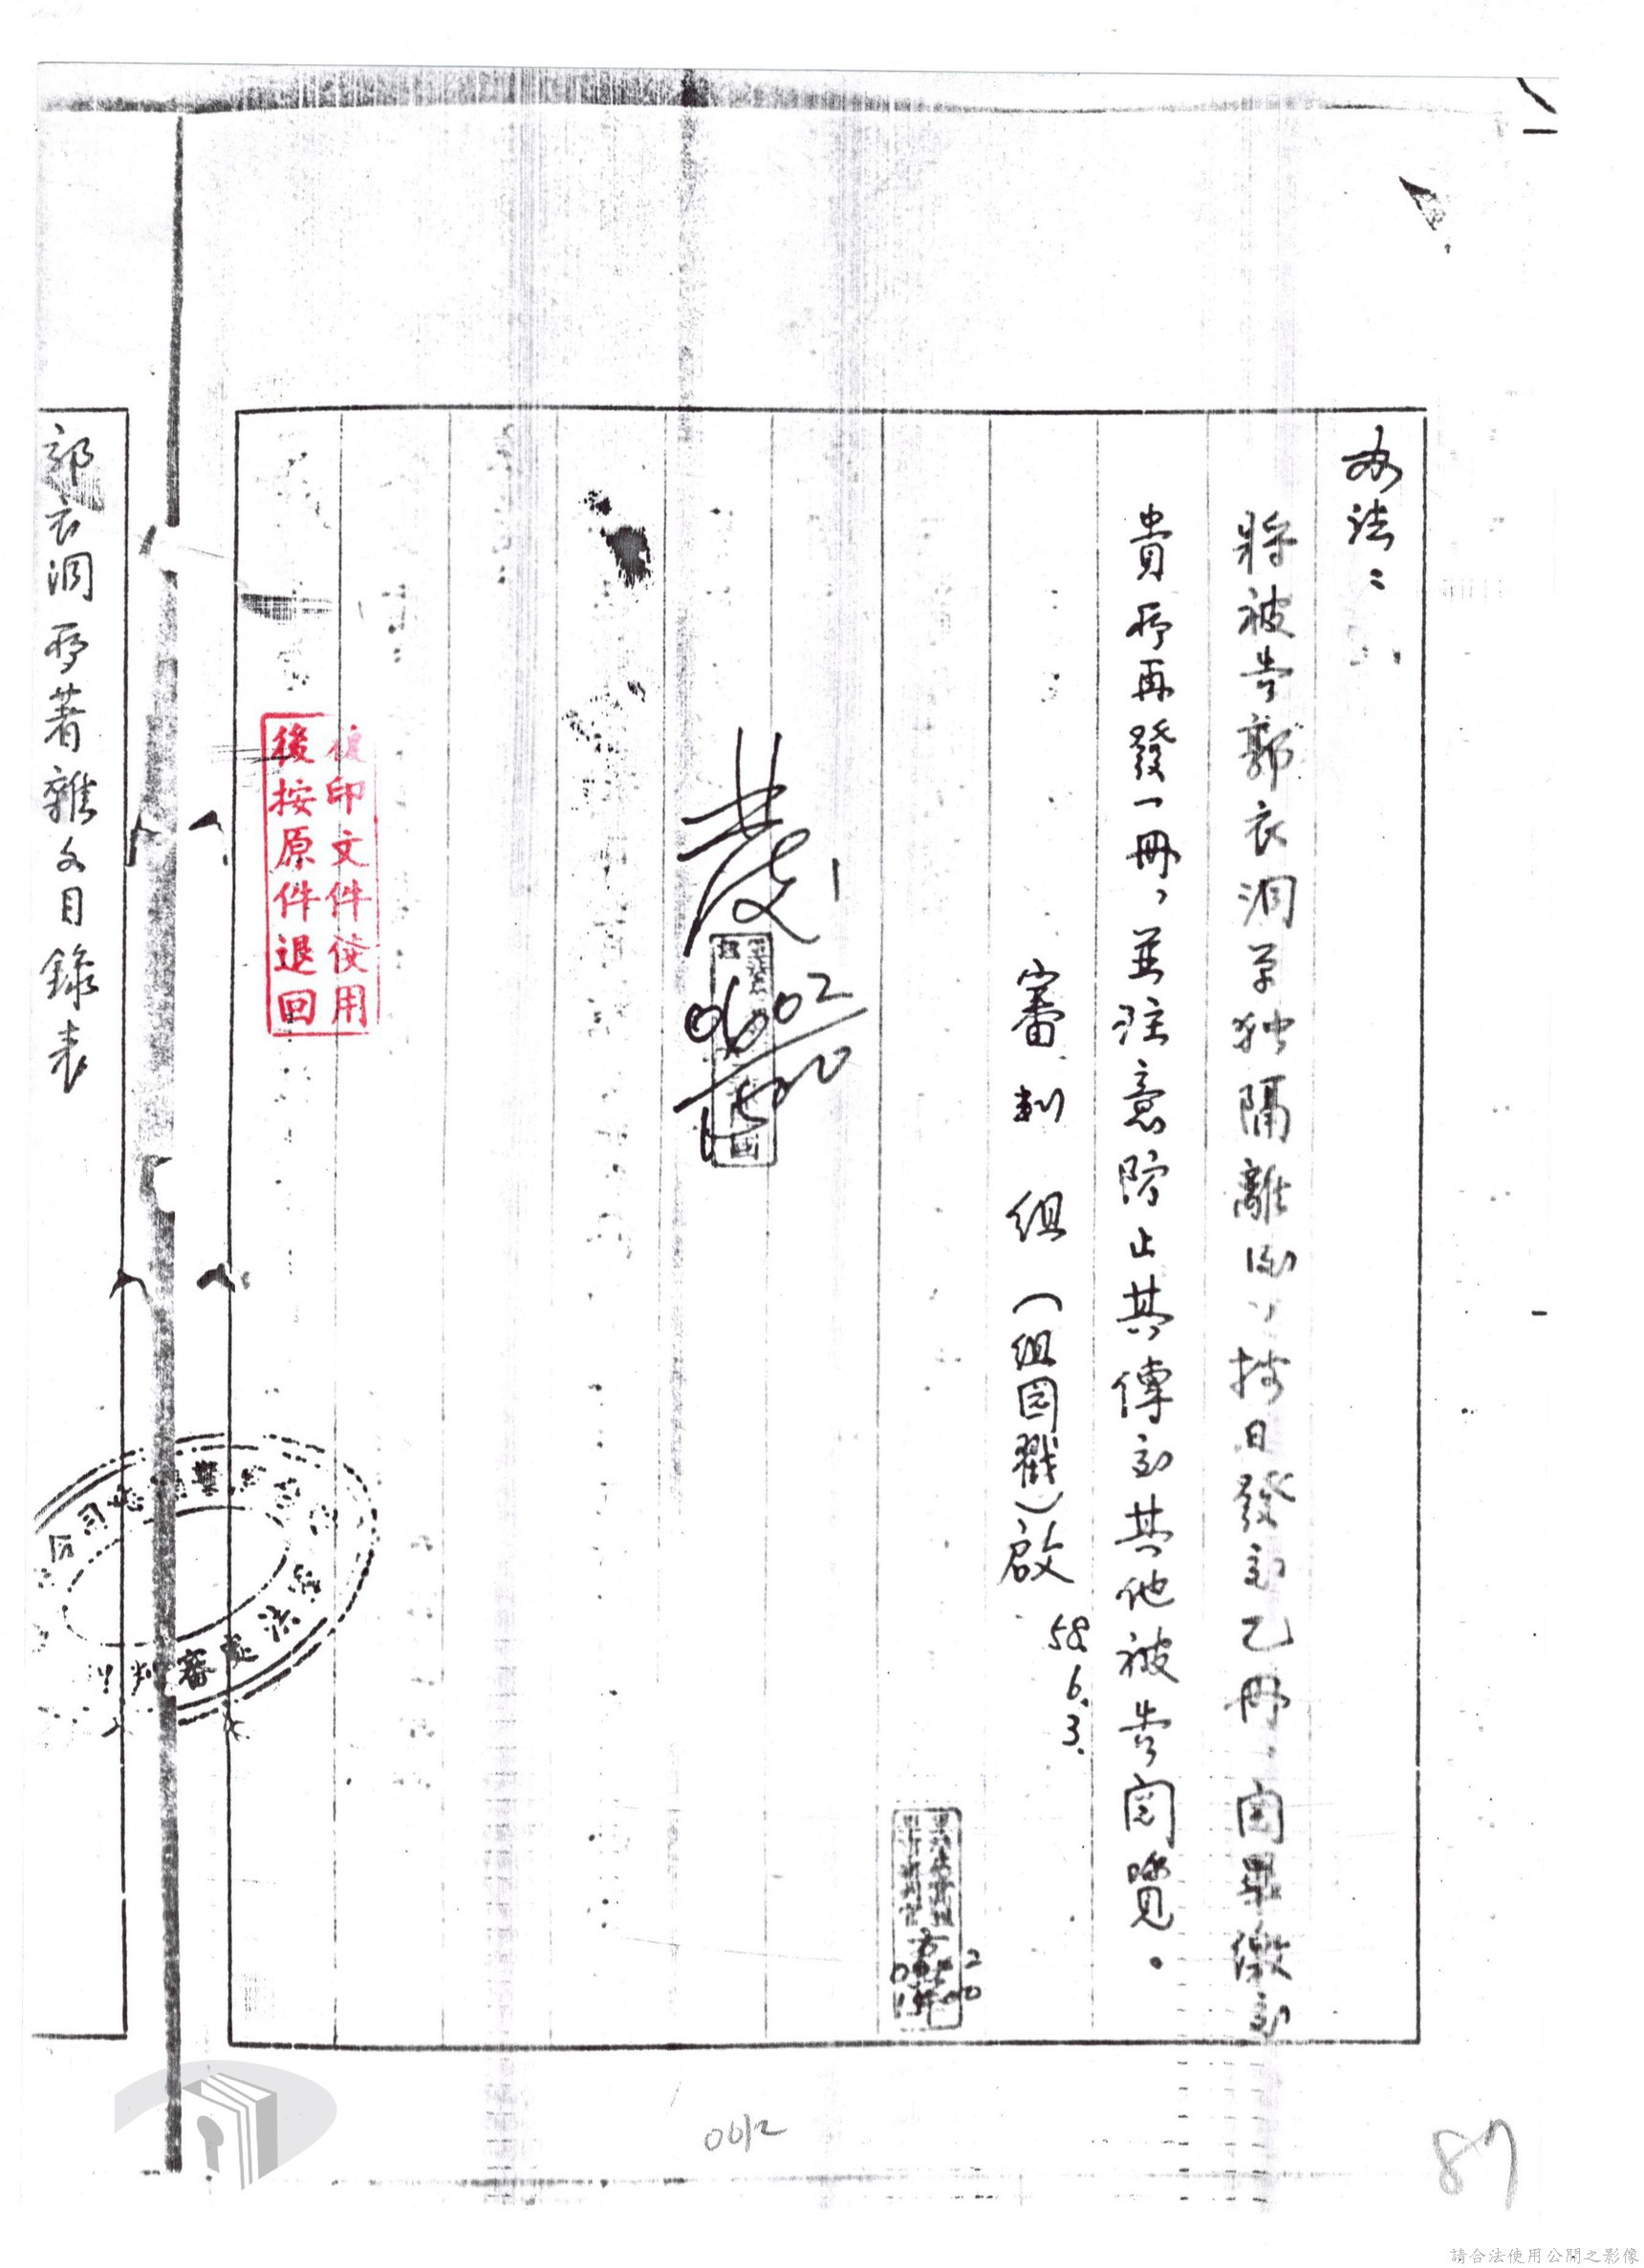 办法：
將被告郭衣洞单独隔離後，按日發交乙冊，閱畢繳交
貴所再發一冊，並注意防止其傳交其他被告閱覽。
審判組（組圓戳）啟 58.6.3.
復印文件使用
後按原件退回
郭衣洞所著雜文目錄表
0012
87
請合法使用公開之影像